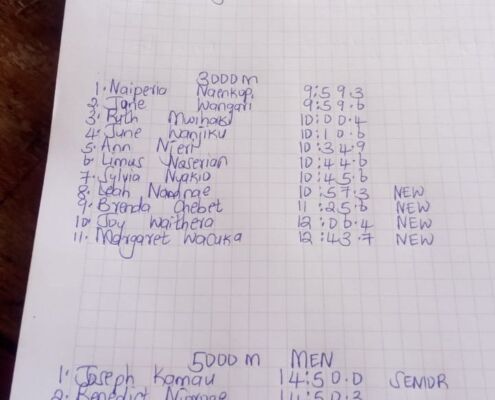 3000m
1. Naiperia Naenkop 9:59.3
2. Jane Wangari 9:59.6
3. Ruth Mwihaki 10:00.4
4. June Wanjiku 10:10.6
5. Ann Njeri 10:34.9
6. Limus Naserian 10:44.6
7. Sylvia Nyakio 10:45.6
8. Leah 10:57.3 NEW
9. Brenda Chebet 11:25.6 NEW
10. Joy Waithera 12:06.4 NEW
11. Margaret Wacuka 12:43.7 NEW
5000m MEN
1. Joseph Kamau 14:50.0 SENIOR
2. Benedict